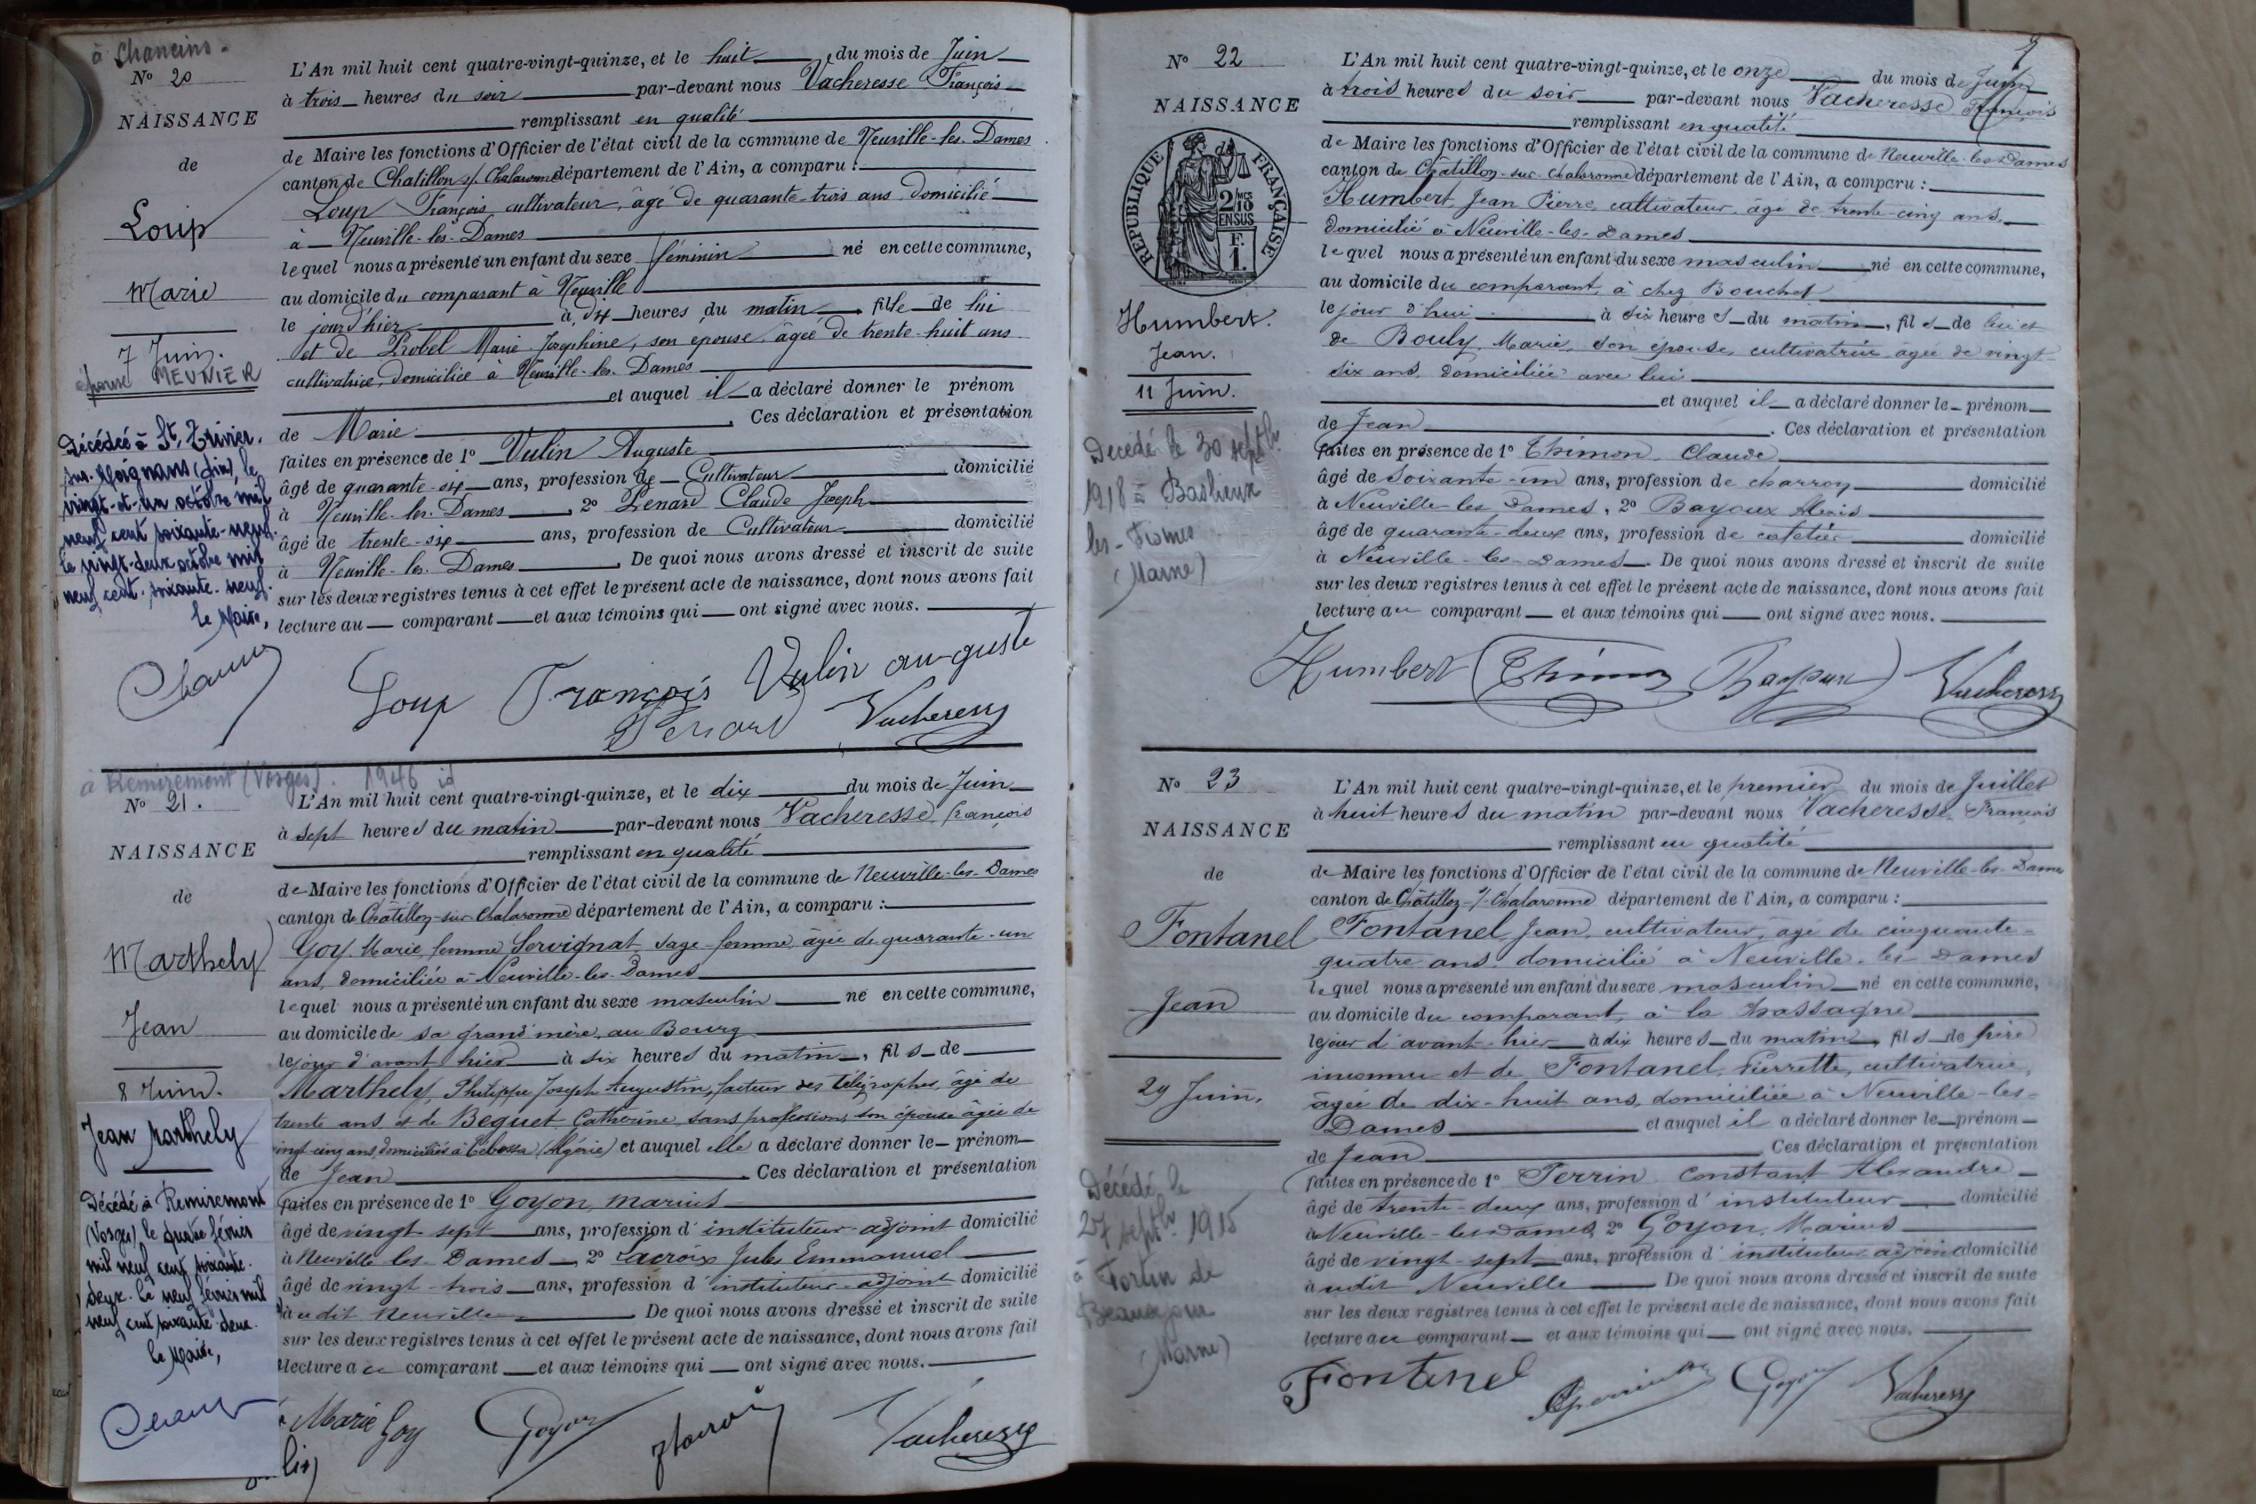 à Chaneins.
Nº 20
NAISSANCE
de
Loup
Marie
7 Juin.
épouse MEUNIER
Décédée à St. Trivier.
sur. Moignans (Ain), le
vingt-et-un octobre mil
neuf cent soixante-neuf.
le vingt-deux octobre mil
neuf cent. soixante. neuf.
le Maire,
L'An mil huit cent quatre-vingt-quinze, et le huit du mois de Juin
à trois heures du soir par-devant nous Vacheresse François
remplissant en qualité
de Maire les fonctions d'Officier de l'état civil de la commune de Neuville-les-Dames
canton de Chatillon s/ Chalaronne département de l'Ain, a comparu :
Loup François cultivateur, âgé de quarante-trois ans domicilié
à Neuville-les-Dames
lequel nous a présenté un enfant du sexe féminin né en cette commune,
au domicile du comparant à Neuville
le jour d'hier à dix heures du matin, fille de lui
et de Probel Marie Josephine, son épouse, âgée de trente-huit ans
cultivatrice, domiciliée à Neuville-les-Dames
et auquel il a déclaré donner le prénom
de Marie. Ces déclaration et présentation
faites en présence de 1º Vulin Auguste
âgé de quarante-six ans, profession de Cultivateur domicilié
à Neuville-les-Dames, 2º Penard Claude Joseph
âgé de trente-six ans, profession de Cultivateur domicilié
à Neuville-les-Dames. De quoi nous avons dressé et inscrit de suite
sur les deux registres tenus à cet effet le présent acte de naissance, dont nous avons fait
lecture au comparant et aux témoins qui ont signé avec nous.
Loup François Vulin auguste
Penard Vacheresse
à Remiremont (Vosges). 1946 id
Nº 21.
NAISSANCE
de
Marthely
Jean
8 Juin.
Jean Marthely
Décédé à Remiremont
(Vosges), le quatre février
mil neuf cent soixante.
deux. le neuf février mil
neuf cent soixante deux.
le Maire,
L'An mil huit cent quatre-vingt-quinze, et le dix du mois de Juin
à sept heures du matin par-devant nous Vacheresse, François
remplissant en qualité
de Maire les fonctions d'Officier de l'état civil de la commune de Neuville-les-Dames
canton de Châtillon-sur-Chalaronne département de l'Ain, a comparu :
Goy Marie femme Servignat, sage-femme, âgée de quarante-un
ans, domiciliée à Neuville-les-Dames
lequel nous a présenté un enfant du sexe masculin né en cette commune,
au domicile de sa grand'mère, au Bourg
le jour d'avant hier à six heures du matin, fils de
Marthely, Philippe Joseph Augustin, facteur des télégraphes, âgé de
trente ans et de Beguet Catherine, sans profession, son épouse âgée de
vingt-cinq ans, domiciliés à Tebessa (Algérie) et auquel elle a déclaré donner le prénom
de Jean. Ces déclaration et présentation
faites en présence de 1º Goyon, Marius
âgé de vingt sept ans, profession d'instituteur-adjoint domicilié
à Neuville-les-Dames, 2º Lacroix Jules Emmanuel
âgé de vingt-trois ans, profession d'instituteur-adjoint domicilié
à udit Neuville. De quoi nous avons dressé et inscrit de suite
sur les deux registres tenus à cet effet le présent acte de naissance, dont nous avons fait
lecture au comparant et aux témoins qui ont signé avec nous.
Marie Goy Goyon Vacheresse
Nº 22
NAISSANCE
RÉPUBLIQUE FRANÇAISE
2/10
EN SUS
F.
1.
Humbert.
Jean.
11 Juin.
Décédé le 30 septbr
1918 à Baslieux
les-Fismes
(Marne)
9
L'An mil huit cent quatre-vingt-quinze, et le onze du mois de Juin
à trois heures du soir par-devant nous Vacheresse François
remplissant en qualité
de Maire les fonctions d'Officier de l'état civil de la commune de Neuville-les-Dames
canton de Châtillon-sur-Chalaronne département de l'Ain, a comparu :
Humbert, Jean Pierre, cultivateur, âgé de trente-cinq ans,
domicilié à Neuville-les-Dames
lequel nous a présenté un enfant du sexe masculin né en cette commune,
au domicile du comparant, à chez Bouchet
le jour d'hui à six heures du matin, fils de lui et
de Bouly, Marie, son épouse, cultivatrice âgée de vingt-
six ans, domiciliée avec lui
et auquel il a déclaré donner le prénom
de Jean. Ces déclaration et présentation
faites en présence de 1º Thimon Claude
âgé de soixante-un ans, profession de charron domicilié
à Neuville-les-Dames, 2º Bayoux Alexis
âgé de quarante-deux ans, profession de cafetier domicilié
à Neuville-les-Dames. De quoi nous avons dressé et inscrit de suite
sur les deux registres tenus à cet effet le présent acte de naissance, dont nous avons fait
lecture au comparant et aux témoins qui ont signé avec nous.
Humbert Thimon Bayoux Vacheresse
Nº 23
NAISSANCE
de
Fontanel
Jean
29 Juin.
Décédé le
27 septbr. 1915
à Fortin de
Beauséjour
(Marne)
L'An mil huit cent quatre-vingt-quinze, et le premier du mois de Juillet
à huit heures du matin par-devant nous Vacheresse François
remplissant en qualité
de Maire les fonctions d'Officier de l'état civil de la commune de Neuville-les-Dames
canton de Châtillon-s/-Chalaronne département de l'Ain, a comparu :
Fontanel, Jean, cultivateur, âgé de cinquante-
quatre ans, domicilié à Neuville-les-Dames
lequel nous a présenté un enfant du sexe masculin né en cette commune,
au domicile du comparant, à la Chassagne
le jour d'avant-hier à dix heures du matin, fils de père
inconnu et de Fontanel, Pierrette, cultivatrice,
âgée de dix-huit ans, domiciliée à Neuville-les-
Dames et auquel il a déclaré donner le prénom
de Jean Ces déclaration et présentation
faites en présence de 1º Perrin Constant Alexandre
âgé de trente-deux ans, profession d'instituteur domicilié
à Neuville-les-Dames, 2º Goyon, Marius
âgé de vingt-sept ans, profession d'instituteur adjoint domicilié
à udit Neuville De quoi nous avons dressé et inscrit de suite
sur les deux registres tenus à cet effet le présent acte de naissance, dont nous avons fait
lecture au comparant et aux témoins qui ont signé avec nous.
Fontanel Goyon Vacheresse